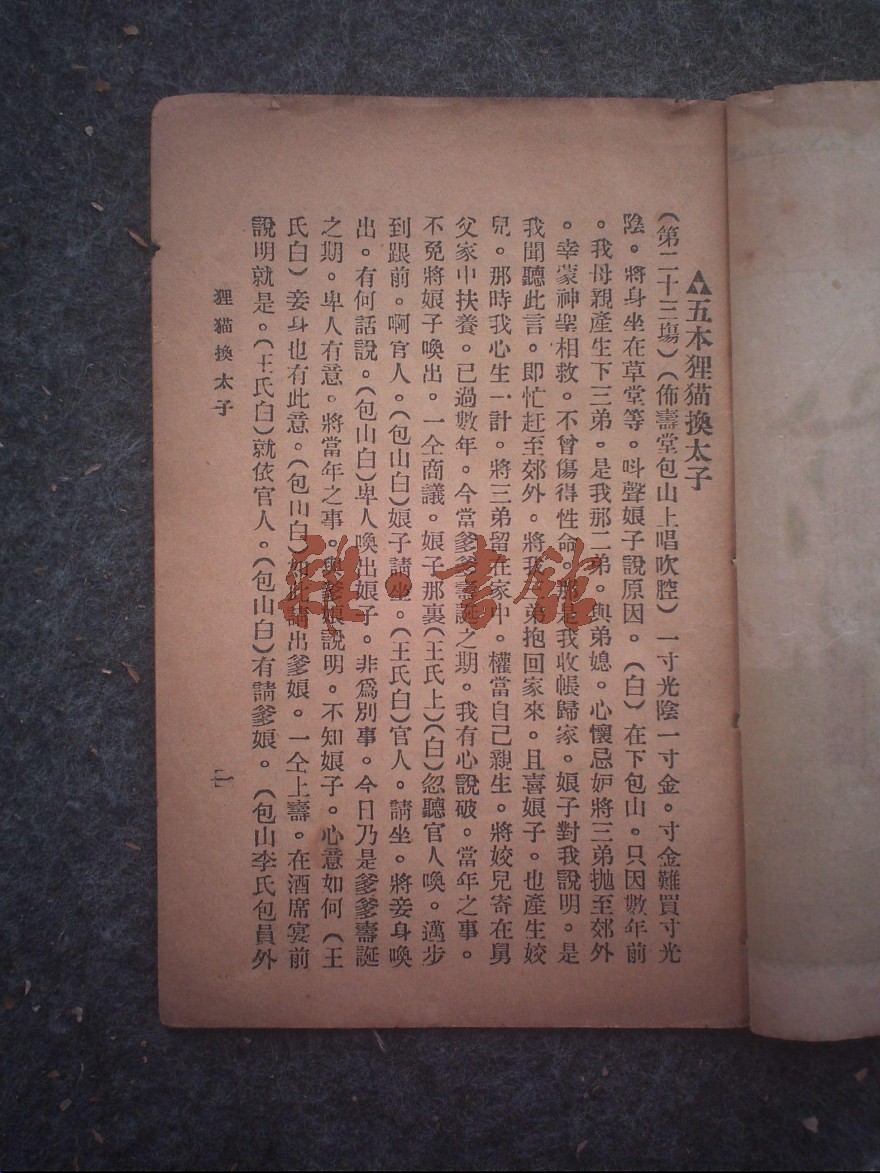 五本狸猫換太子
(第二十三塲)(佈壽堂包山上唱吹腔)一寸光陰一寸金。寸金難買寸光
陰。將身坐在草堂等。呌聲娘子說原因。(白)在下包山。只因數年前
。我母親產生下三弟。是我那二弟。與弟媳。心懷忌妒將三弟拋至郊外
。幸蒙神聖相救。不曾傷得性命。那是我收帳歸家。娘子對我說明。是
我聞聽此言。即忙赶至郊外。將我三弟抱回家來。且喜娘子。也產生姣
兒。那時我心生一計。將三弟留在家中。權當自己親生。將姣兒寄在舅
父家中扶養。已過數年。今當爹爹壽誕之期。我有心說破。當年之事。
不免將娘子喚出。一仝商議。娘子那裏(王氏上)(白)忽聽官人喚。邁步
到跟前。啊官人。(包山白)娘子請坐。(王氏白)官人。請坐。將妾身喚
出。有何話說。(包山白)卑人喚出娘子。非爲別事。今日乃是爹爹壽誕
之期。卑人有意。將當年之事。與爹娘說明。不知娘子。心意如何(王
氏白)妾身也有此意。(包山白)如此請出爹娘。一仝上壽。在酒席宴前
說明就是。(王氏白)就依官人。(包山白)有請爹娘。(包山李氏包員外
狸猫換太子
一
雜·書館